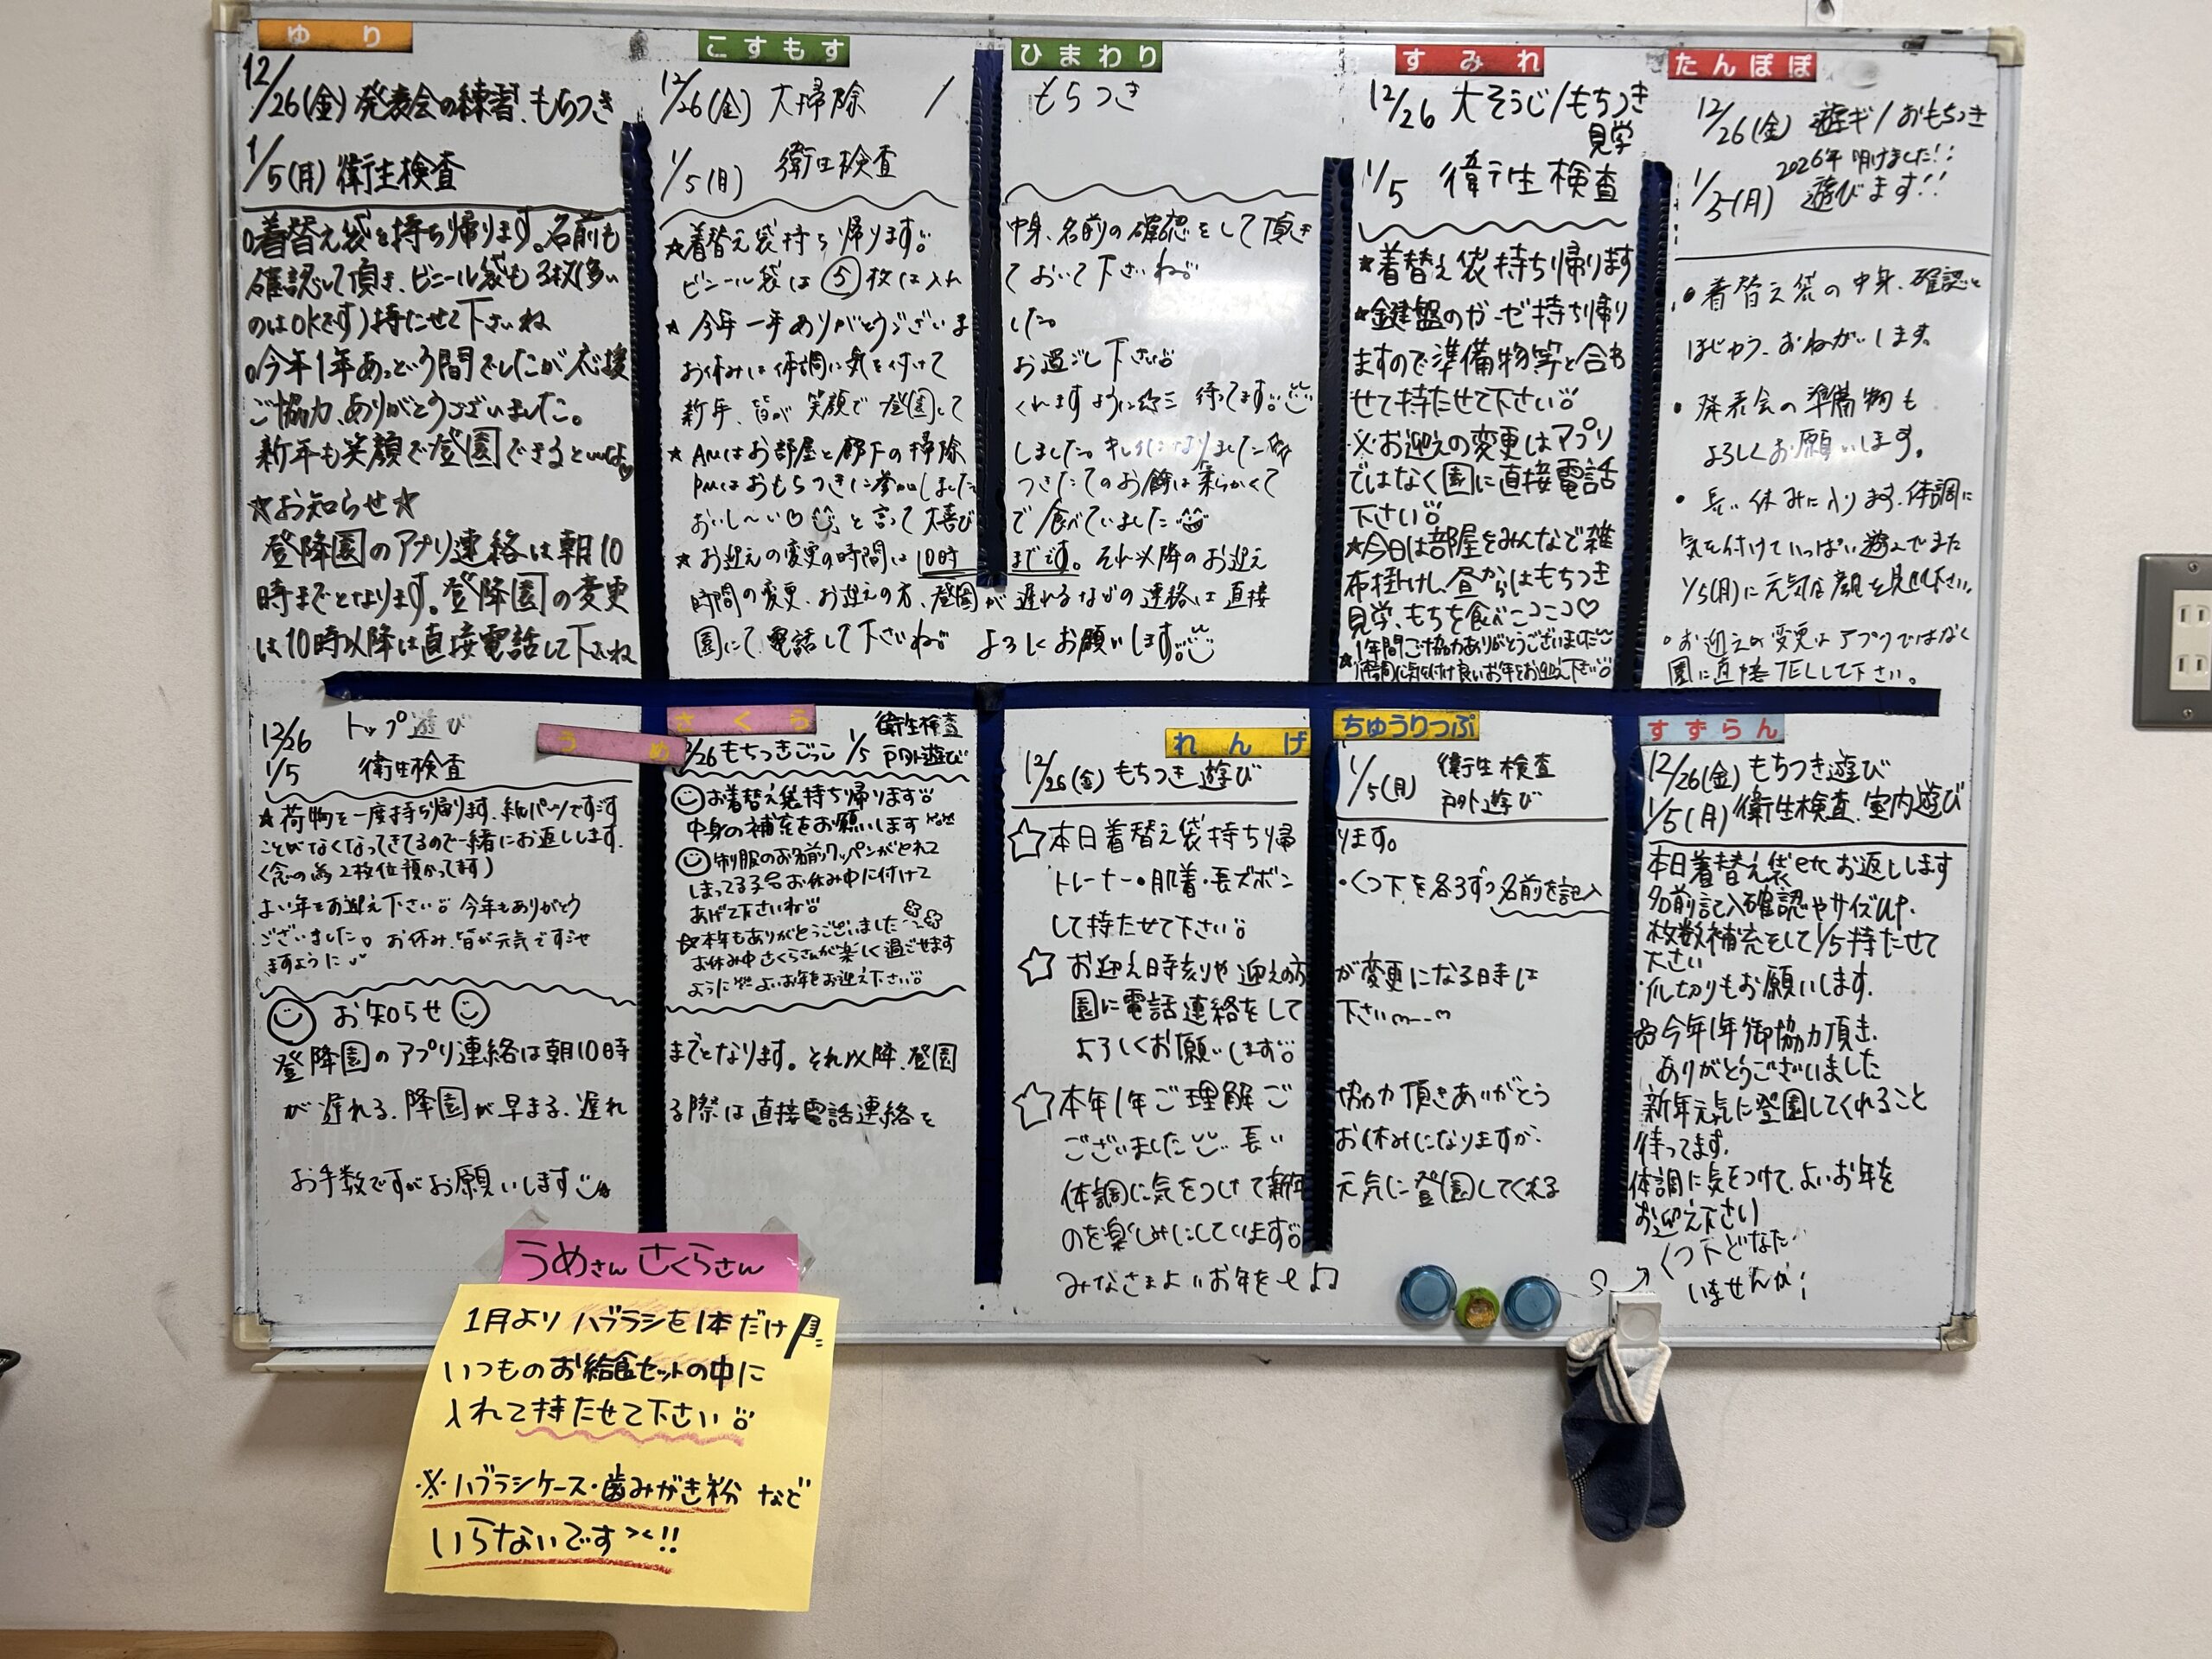 ゆり
12/26(金) 発表会の練習、もちつき
1/5(月) 衛生検査
○着替え袋を持ち帰ります。名前も
確認して頂き、ビニール袋も3枚(多い
のはOKです)持たせて下さいね
○今年1年あっという間でしたが応援
ご協力、ありがとうございました。
新年も笑顔で登園できるといいな♡
☆お知らせ☆
登降園のアプリ連絡は朝10
時までとなります。登降園の変更
は10時以降は直接電話して下さいね
こすもす
ひまわり
12/26(金) 大掃除 / もちつき
1/5(月) 衛生検査
★着替え袋持ち帰ります。中身、名前の確認をして頂き
ビニール袋は⑤枚は入れておいて下さいね。
★今年一年ありがとうございました。
お休みは体調に気を付けてお過ごし下さい。
新年、皆が笑顔で登園してくれますように 待ってます。
★AMはお部屋と廊下の掃除しました。キレイになりました
PMはおもちつきに参加しました つきたてのお餅は柔らかくて
おいし〜い♡と言って大喜びで食べていました
★お迎えの変更の時間は10時までです。それ以降のお迎え
時間の変更、お迎えの方、登園が遅れるなどの連絡は直接
園にて電話して下さいね。よろしくお願いします。
すみれ
12/26 大そうじ/もちつき
見学
1/5 衛生検査
★着替え袋持ち帰ります
★鍵盤のガーゼ持ち帰り
ますので準備物等と合わ
せて持たせて下さい。
※お迎えの変更はアプリ
ではなく園に直接電話
下さい。
★今日は部屋をみんなで雑
巾掛けし、昼からはもちつき
見学、もちを食べニコニコ♡
★1年間ご協力ありがとうございました
体調に気を付け良いお年をお迎え下さい。
たんぽぽ
12/26(金) 遊ギ/おもちつき
2026年 明けました!!
1/5(月) 遊びます!!
・着替え袋の中身、確認と
ほじゅう、おねがいします。
・発表会の準備物も
よろしくお願いします。
・長い休みに入ります。体調に
気を付けていっぱい遊んでまた
1/5(月)に元気な顔を見せて下さい。
○お迎えの変更はアプリではなく
園に直接TELして下さい。
うめ
12/26 トップ遊び
1/5 衛生検査
★荷物を一度持ち帰ります。紙パンツですごす
ことがなくなってきてるので一緒にお返しします。
(念の為2枚位預かってます)
よい年をお迎え下さい。今年もありがとう
ございました。お休み、皆が元気ですごせ
ますように
さくら
12/26 もちつきごっこ 1/5 衛生検査
戸外遊び
お着替え袋持ち帰ります。
中身の補充をお願いします
制服のお名前ワッペンがとれて
しまってる子もお休み中に付けて
あげて下さいね。
☆本年もありがとうございました
お休み中さくらさんが楽しく過ごせます
ように よいお年をお迎え下さい。
お知らせ
登降園のアプリ連絡は朝10時までとなります。それ以降、登園
が遅れる、降園が早まる、遅れる際は直接電話連絡を
お手数ですがお願いします
れんげ
ちゅうりっぷ
12/26(金) もちつき遊び
1/5(月) 衛生検査
戸外遊び
☆本日着替え袋持ち帰ります。
トレーナー・肌着・長ズボン・くつ下を各3ずつ名前を記入
して持たせて下さい。
☆お迎え時刻や迎えの方が変更になる時は
園に電話連絡をして下さいm__m
よろしくお願いします。
☆本年1年ご理解ご協力頂きありがとう
ございました 長いお休みになりますが、
体調に気をつけて新年元気に登園してくれる
のを楽しみにしています。
みなさまよいお年を
すずらん
12/26(金) もちつき遊び
1/5(月) 衛生検査、室内遊び
本日着替え袋etcお返しします
名前記入確認やサイズup、
枚数補充をして1/5持たせて
下さい
爪切りもお願いします。
今年1年御協力頂き、
ありがとうございました
新年元気に登園してくれること
待ってます。
体調に気をつけて、よいお年を
お迎え下さい
くつ下どなた
いませんか
うめさん さくらさん
1月より ハブラシを1本だけ
いつものお給食セットの中に
入れて持たせて下さい。
※ハブラシケース・歯みがき粉 など
いらないです!!